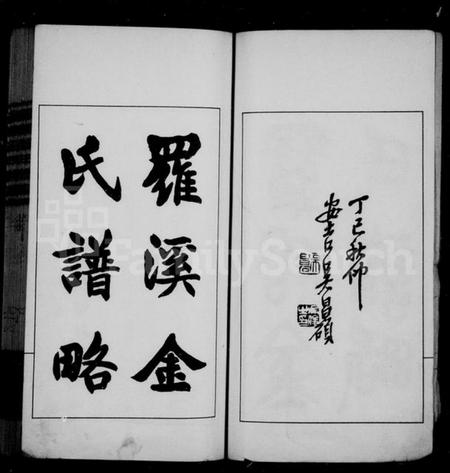 羅溪金
氏譜略
丁巳秋仲
安吉吳昌碩
FamilySearch